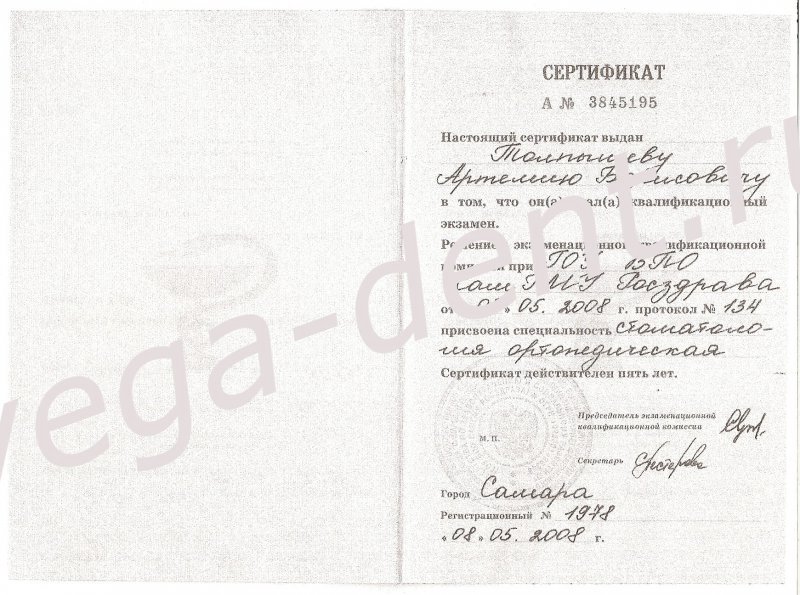 СЕРТИФИКАТ
А № 3845195
Настоящий сертификат выдан
Артемию Борисовичу
в том, что он(а) сдал(а) квалификационный
экзамен.
Решением экзаменационной квалификационной
комиссии при ГОУ ВПО
СамГМУ Росздрава
от 05. 2008 г. протокол № 134
присвоена специальность стоматоло-
гия ортопедическая
Сертификат действителен пять лет.
Председатель экзаменационной
квалификационной комиссии
М. П.
Секретарь
Город Самара
Регистрационный № 1978
« 08 » 05. 2008 г.
vega-dent.ru